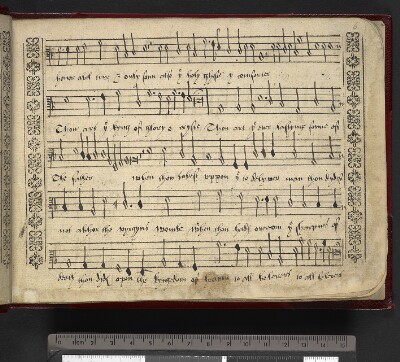 honor and onely sone also y holy gost y comforter
Thou art y kyng of glory o cryste Thou art y everlastyng sonne of
the father when thou tokest uppon y to delyver man thou dydest
not abhor the vyrgyns wombe when thou hadst overcom y sharpnes of
death thou dydst open the kyngdom of heaven to all belevers to all belevers